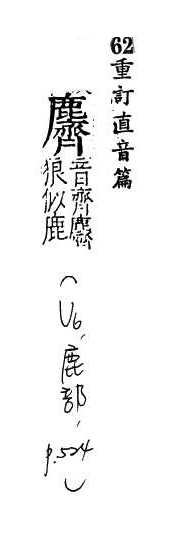 62重訂直音篇
麡
音齊麡
狼似鹿
(V6, 鹿部, p.524)